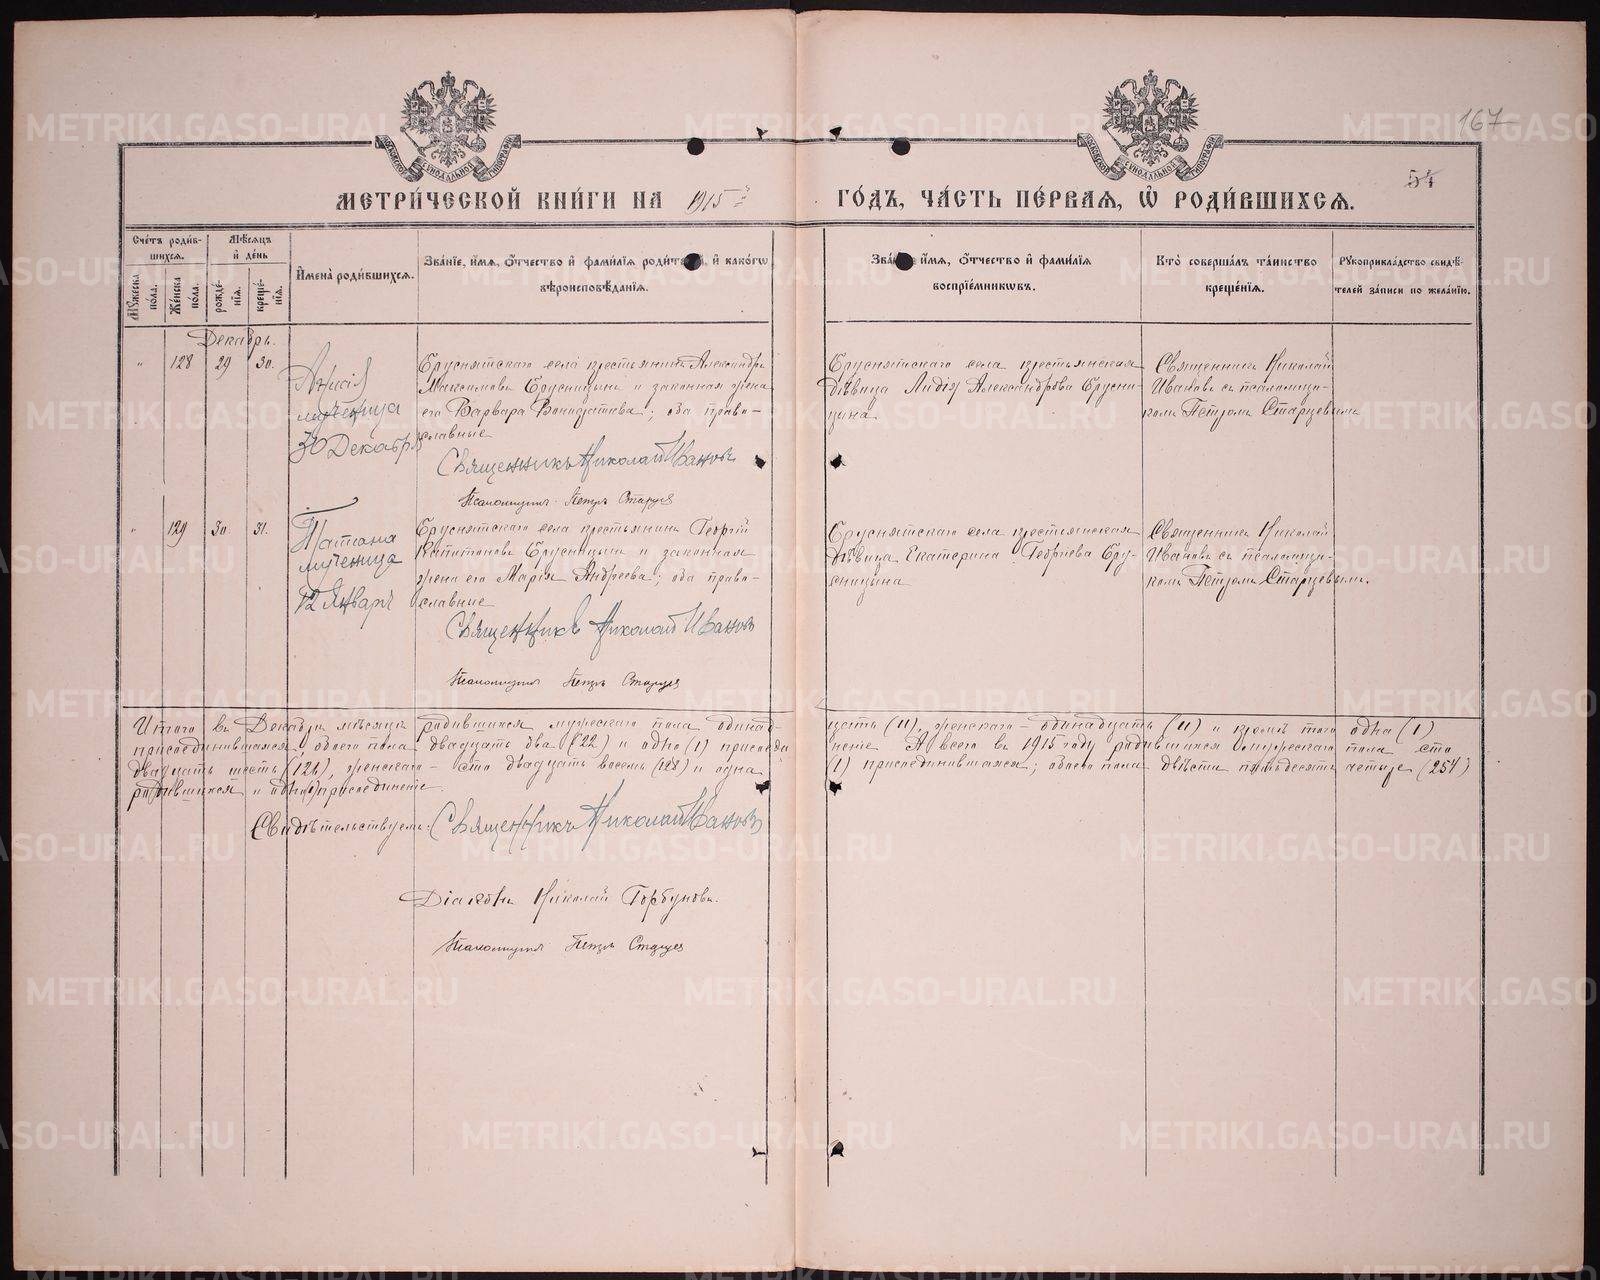 167
54
МЕТРИ́ЧЕСКОЙ КНИ́ГИ НА 1915й ГО́ДЪ, ЧА́СТЬ ПЕ́РВАЯ, Ѽ РОДИ́ВШИХСЯ.
Сче́тъ роди́вшихся.
Мѣ́сяцъ и де́нь
Му́жеска по́ла.
Же́нска по́ла.
рожде́нія.
креще́нія.
Имена̀ роди́вшихся.
Зва́ніе, и́мя, о́тчество и фами́лія роди́телей, и како́гѡ вѣроисповѣ́данія.
Зва́ніе, и́мя, о́тчество и фами́лія воспріе́мникѡвъ.
Кто̀ соверша́лъ та́инство креще́нія.
Рукоприкла́дство свидѣ́телей за́писи по жела́нію.
Декабрь.
" 128 29 30.
Анисія
мученица
30 Декабря
Бруснятскаго села крестьянинъ Александръ
Максимовъ Брусницынъ и законная жена
его Варвара; оба право-
славные
Священникъ Николай Ивановъ
Псаломщикъ Петръ Старцевъ
Бруснятскаго села крестьянская
дѣвица Лидія Александрова Брусни-
цына
Священникъ Николай
Ивановъ съ псаломщи-
комъ Петромъ Старцевымъ
" 129 30 31.
Татіана
мученица
12 Январь
Бруснятскаго села крестьянинъ Георгій
Капитоновъ Брусницынъ и законная
жена его Марія Андреева; оба право-
славные
Священникъ Николай Ивановъ
Псаломщикъ Петръ Старцевъ
Бруснятскаго села крестьянская
дѣвица Екатерина Георгіева Бру-
сницына
Священникъ Николай
Ивановъ съ псаломщи-
комъ Петромъ Старцевымъ.
Итого въ Декабрѣ мѣсяцѣ родившихся мужескаго пола одинад-
цать (11), женскаго – одинадцать (11) и кромѣ того одна (1)
присоединившаяся; обоего пола двадцать два (22) и одно (1) присоеди
неніе. А всего въ 1915 году родившихся мужескаго пола сто
двадцать шесть (126), женскаго – сто двадцать восемь (128) и одна
(1) присоединившаяся; обоего пола двѣсти пятьдесятъ четыре (254)
родившихся и одно (1) присоединеніе.
Свидѣтельствуемъ: Священникъ Николай Ивановъ
Діаконъ Николай Горбуновъ.
Псаломщикъ Петръ Старцевъ
METRIKI.GASO-URAL.RU